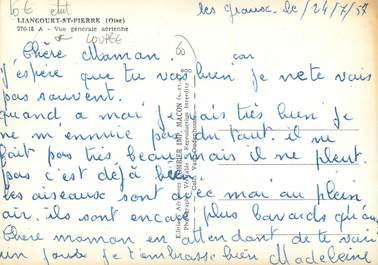 10 € etat
LOUPÉE
LIANCOURT-ST-PIERRE (Oise)
276-18 A - Vue générale aérienne
les granx. le /24/7/57
Chère Maman. car
j'espère que tu vas bien je ne te vois
pas souvent.
quand a mai je vais très bien je
ne m'ennuie pas du tout il ne
fait pas très beau mais il ne pleut.
pas c'est déjà bien
les aiseaux sont avec mai au plein
air. ils sont encore plus bavards qu'au
Chère maman en attendant de te voir
un jour je t'embrasse bien Madeleine
COMBIER IMP. MACON